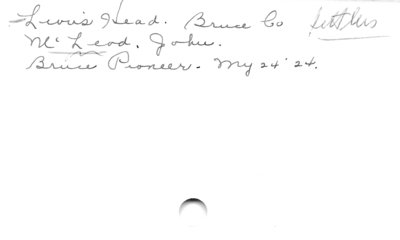 Lion's Head. Bruce Co Settlers
McLeod, John.
Bruce Pioneer. My 24 '24.